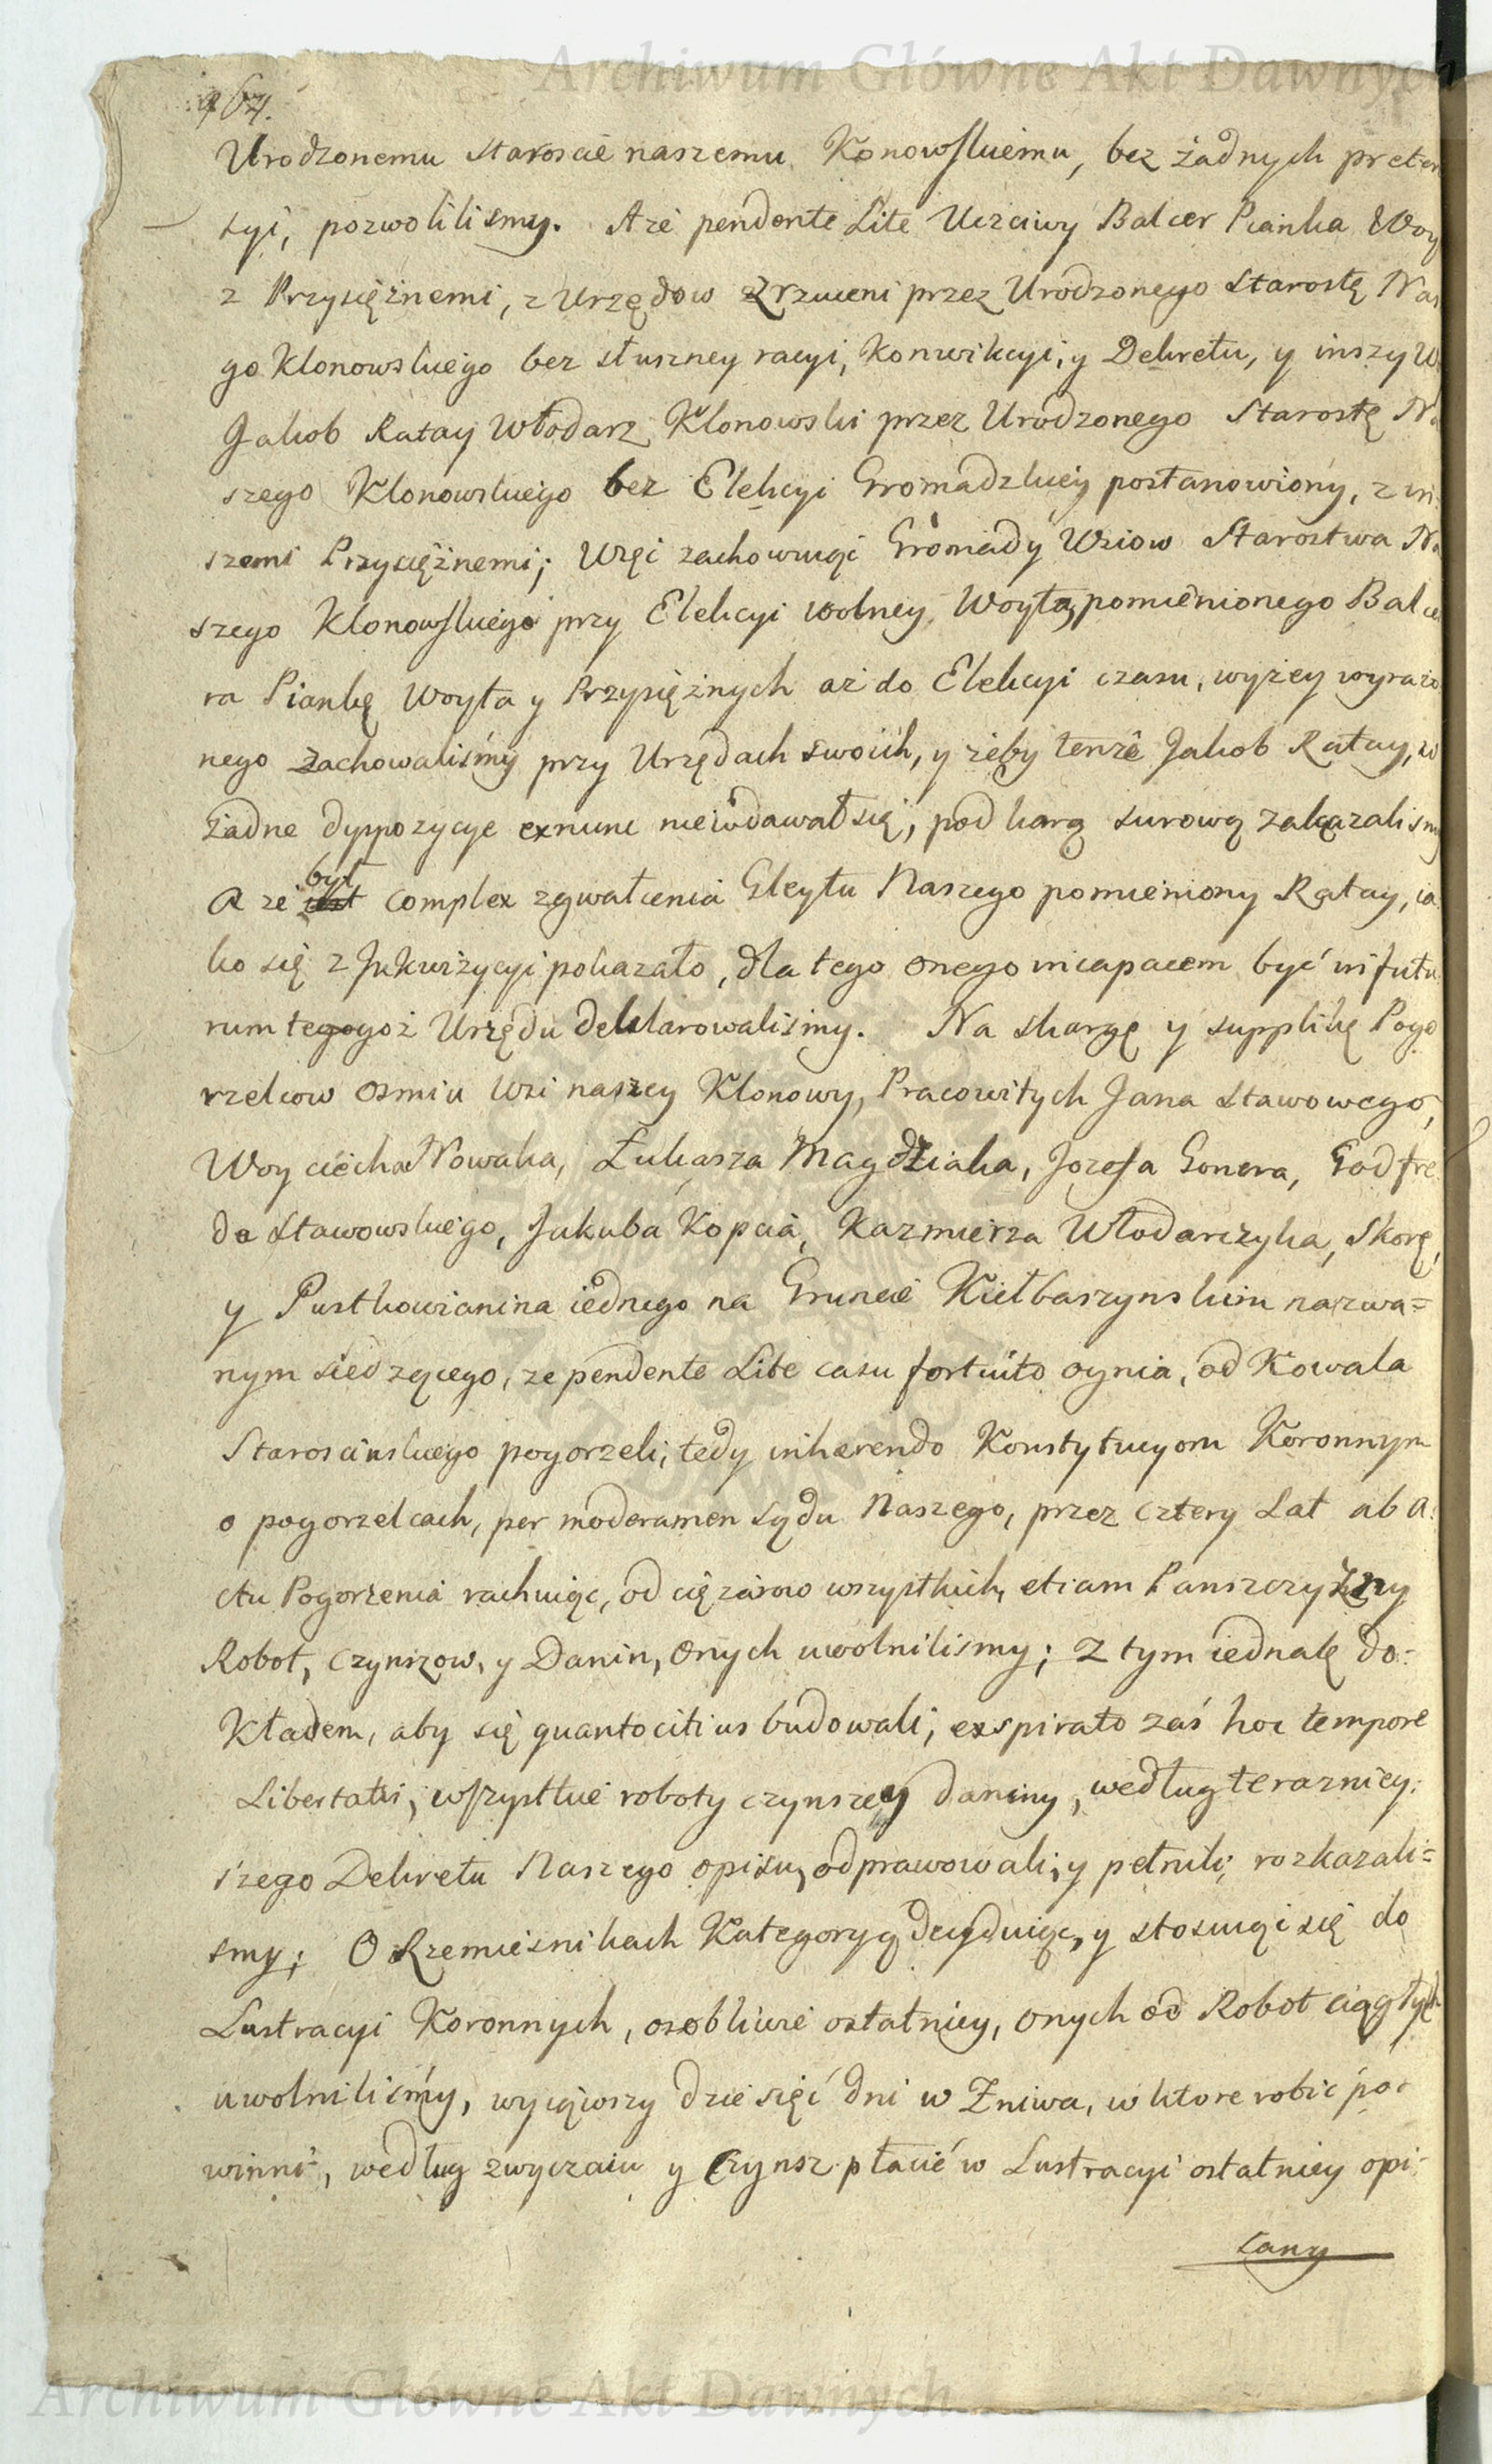 Archiwum Główne Akt Dawnych
Urodzonemu Staroscie naszemu Konowskiemu, bez żadnych preten
syi, pozwolilismy. A że pendente Lite Uczciwy Balcer Pianka Woy
z Przysiężnemi, z Urzędow zrzuceni przez Urodzonego Starostę Nas
go Klonowskiego bez słuszney racyi, konwikcyi, y Dekretu, y inszy W
Jakob Ratay Włodarz Klonowski przez Urodzonego Starostę Na
szego Klonowskiego bez Elekcyi Gromadzkiey postanowiony, z in
szemi Przysiężnemi; Więc zachowuiąc Gromady Wsiow Starostwa Na
szego Klonowskiego przy Elekcyi wolney Woyta, pomienionego Balce
ra Piankę Woyta y Przysiężnych aż do Elekcyi czasu, wyżey wyrażo
nego zachowaliśmy przy Urzędach swoich, y żeby tenże Jakob Ratay, w
żadne dyspozycye exnunc niewdawał się, pod karą surową zakazalismy
A że był complex zgwałcenia Gleytu Naszego pomieniony Ratay, ia
ko się z Inkwizycyi pokazało, dla tego onego incapacem być in futu
rum tegogoż Urzędu deklarowalismy. Na skargę y supplikę Pogo
rzelcow osmiu Wsi naszey Klonowy, Pracowitych Jana Stawowego,
Woyciecha Nowaka, Łukasza Magdziaka, Jozefa Gonera, Godfre
da Stawowskiego, Jakuba Kopcia, Kazmierza Włodarczyka, Skorę,
y Pustkowianina iednego na Gruncie Kiełbaszynskim nazwa=
nym siedzącego, że pendente Lite casu fortuito ognia, od Kowala
Staroscinskiego pogorzeli; tedy inhærendo Konstytucyom Koronnym
o pogorzelcach, per moderamen sądu Naszego, przez cztery Lat ab a:
ctu Pogorzenia rachuiąc, od ciężarow wszystkich, etiam Panszczyzny
Robot, czynszow, y Danin, onych uwolnilismy; z tym iednak do-
kładem, aby się quantocitius budowali; exspirato zaś hoc tempore
Libertatis, wszystkie roboty czynsze y daniny, według terazniey:
szego Dekretu Naszego opisu, odprawowali, y pełnili; rozkazali=
smy; O Rzemiesnikach Kategoryą decyduiąc, y stosuiąc się do
Lustracyi Koronnych, osobliwie ostatniey, onych od Robot ciągłych
uwolniliśmy, wyiąwszy dziesięć dni w Żniwa, w ktore robić po-
winni, według zwyczaiu y Czynsz płacić w Lustracyi ostatniey opi-
sany
Archiwum Główne Akt Dawnych